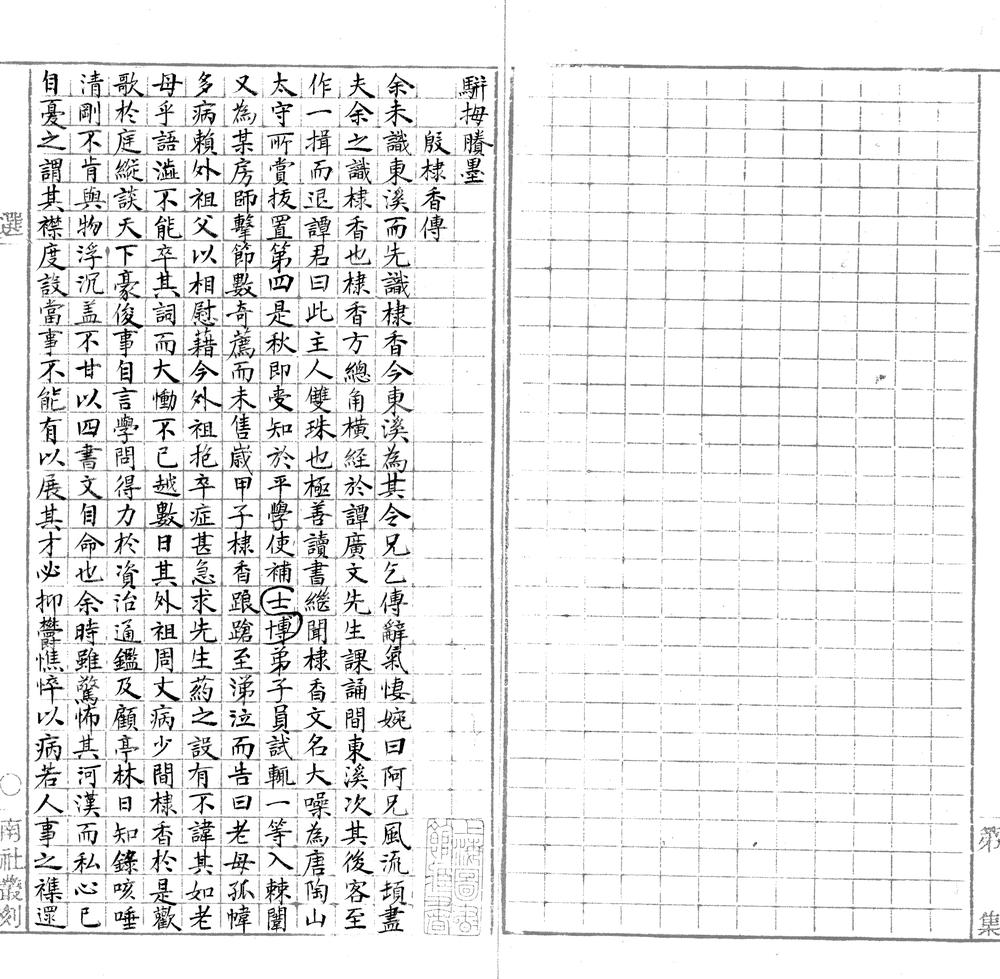 駢拇賸墨
殷棣香傳
余未識東溪而先識棣香今東溪為其令兄乞傳辭氣悽婉曰阿兄風流頓盡
夫余之識棣香也棣香方總角橫經於譚廣文先生課誦間東溪次其後客至
作一揖而退譚君曰此主人雙珠也極善讀書繼聞棣香文名大噪為唐陶山
太守所賞拔置第四是秋即受知於平學使補士博弟子員試輒一等入棘闈
又為某房師擊節數奇薦而未售歲甲子棣香踉蹌至涕泣而告曰老母孤幃
多病賴外祖父以相慰藉今外祖抱卒症甚急求先生葯之設有不諱其如老
母乎語澁不能卒其詞而大慟不已越數日其外祖周丈病少間棣香於是歡
歌於庭縱談天下豪俊事自言學問得力於資治通鑑及顧亭林日知錄咳唾
清剛不肯與物浮沉盖不甘以四書文自命也余時雖驚怖其河漢而私心已
自憂之謂其襟度設當事不能有以展其才必抑鬱憔悴以病若人事之襍還
選
南社叢刻
第
集
上海圖書館藏書